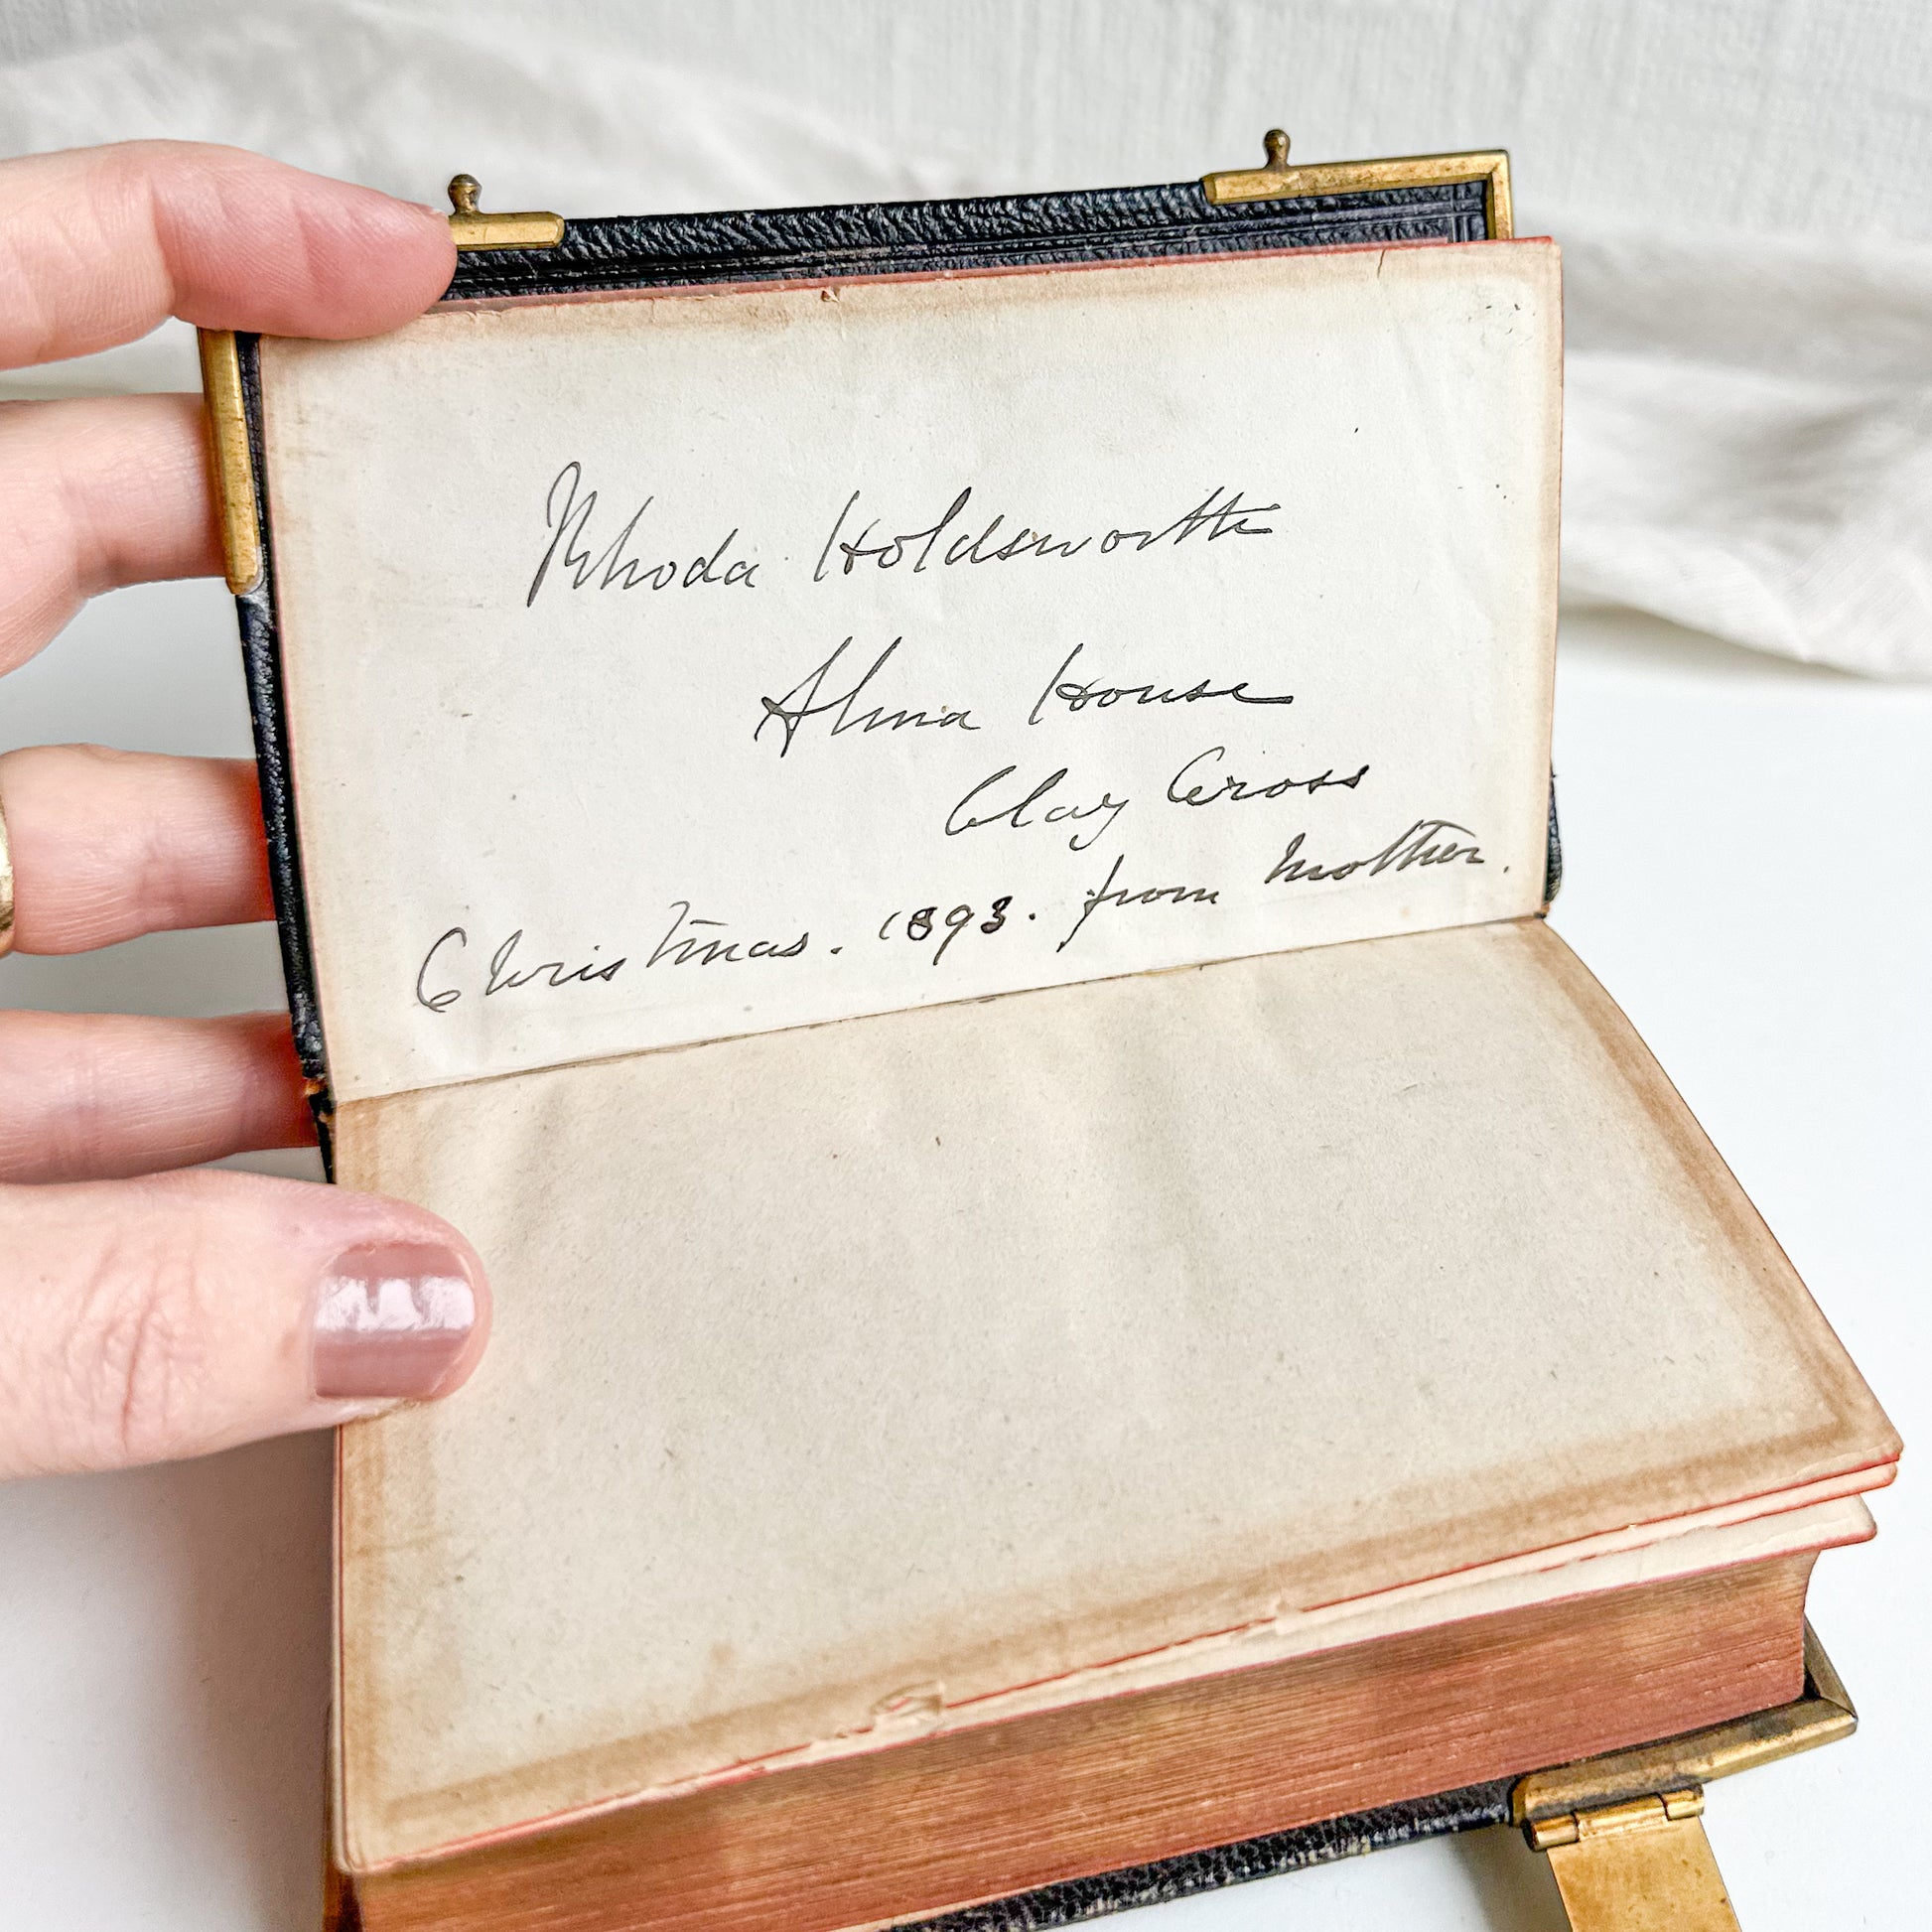 Rhoda Holdsworth
Alma House
Clay Cross
Christmas. 1893. from Mother.